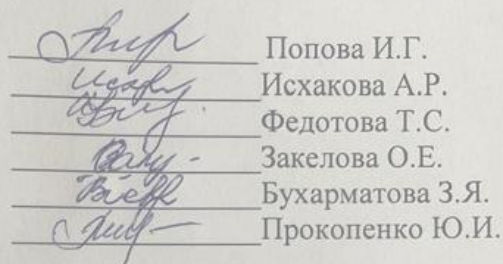 Попова И.Г.
Исхакова А.Р.
Федотова Т.С.
Закелова О.Е.
Бухарматова З.Я.
Прокопенко Ю.И.